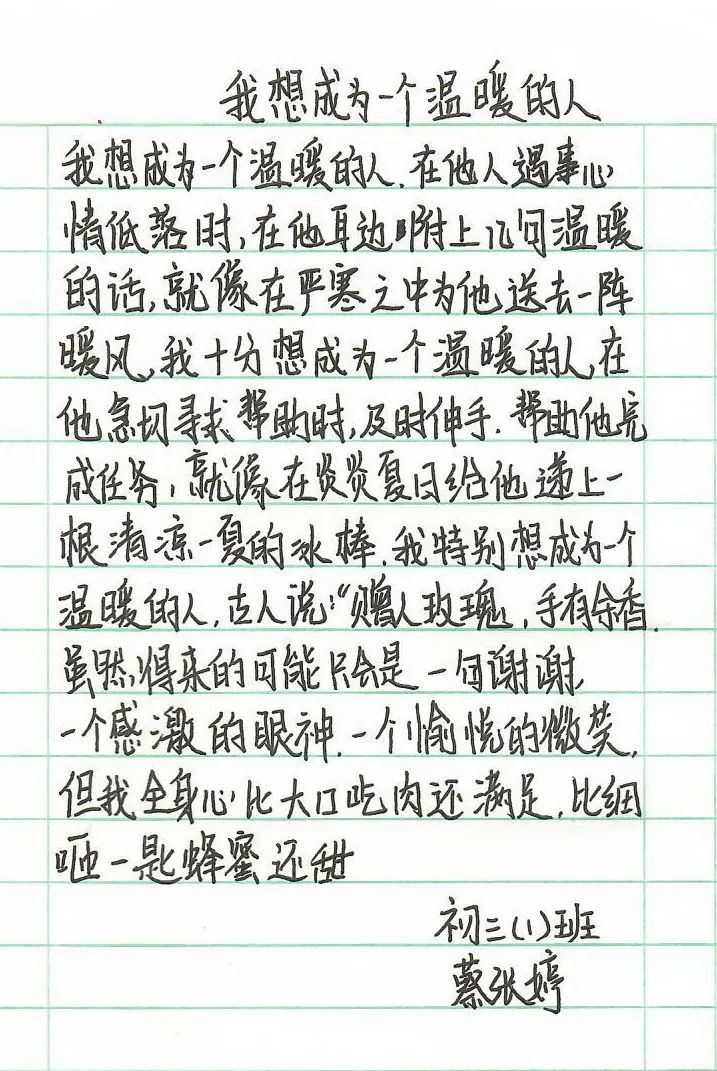 我想成为一个温暖的人
我想成为一个温暖的人.在他人遇事心
情低落时,在他耳边附上几句温暖
的话,就像在严寒之中为他送去一阵
暖风,我十分想成为一个温暖的人,在
他急切寻求帮助时,及时伸手.帮助他完
成任务,就像在炎炎夏日给他递上一
根清凉一夏的冰棒.我特别想成为一个
温暖的人,古人说:“赠人玫瑰,手有余香.
虽然,得来的可能只会是一句谢谢,
一个感激的眼神.一个愉悦的微笑,
但我全身心比大口吃肉还满足,比细
咂一匙蜂蜜还甜
初三(1)班
蔡张婷